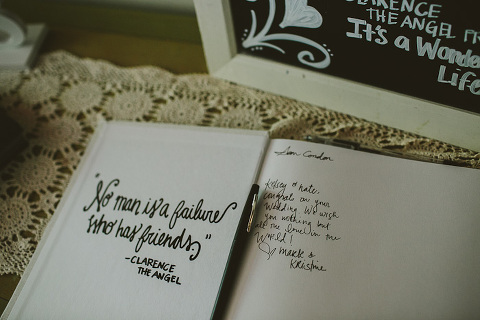 CLARENCE
THE ANGEL FR
It's a Wonde
Life
"No man is a failure
who has friends."
-CLARENCE
THE ANGEL
Kelsey & Nate,
congrats on your
Wedding. We wish
you nothing but
all the love in the
World!
Mark &
Kristine